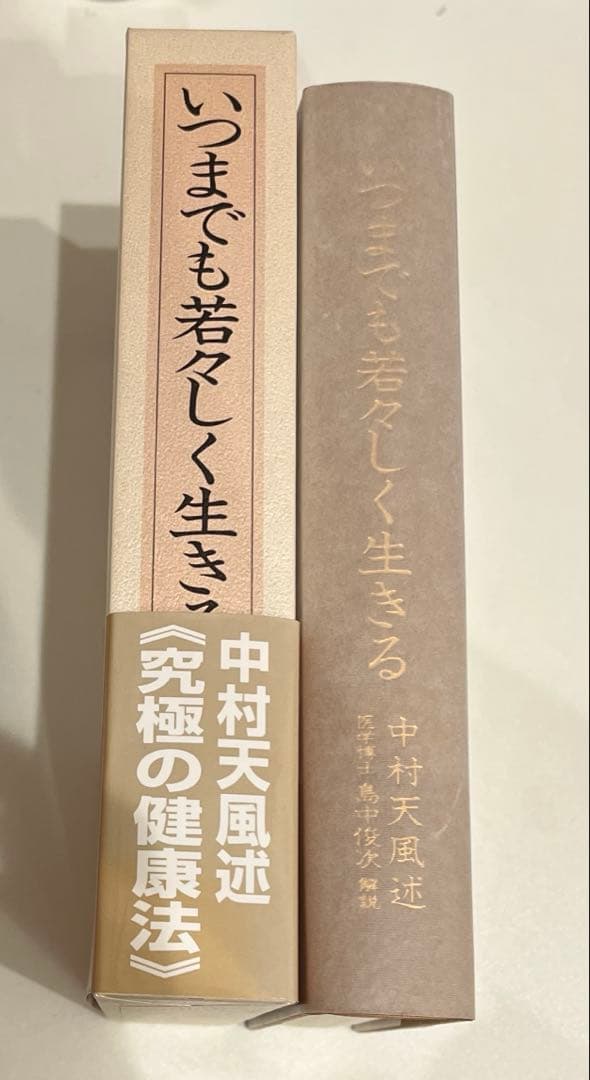 いつまでも若々しく生きる
中村天風述
《究極の健康法》
いつまでも若々しく生きる
中村天風述
医学博士 島中俊次 解説